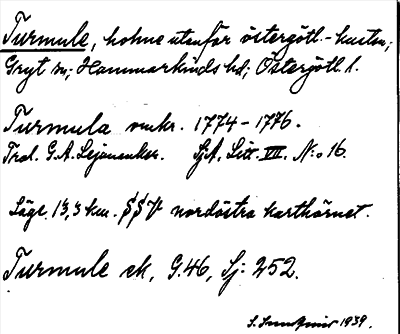 Turmule, holme utanför östergötl.-kusten;
Gryt sn; Hammarkinds hd; Östergötl. l.
Turmula omkr. 1774-1776.
Trol. G.A. Lejonanker. SjA, Litt. VII. No: 16.
Läge 13,3 km. SSV nordöstra karthörnet.
Turmule ek, G.46, Sj: 252.
1939.